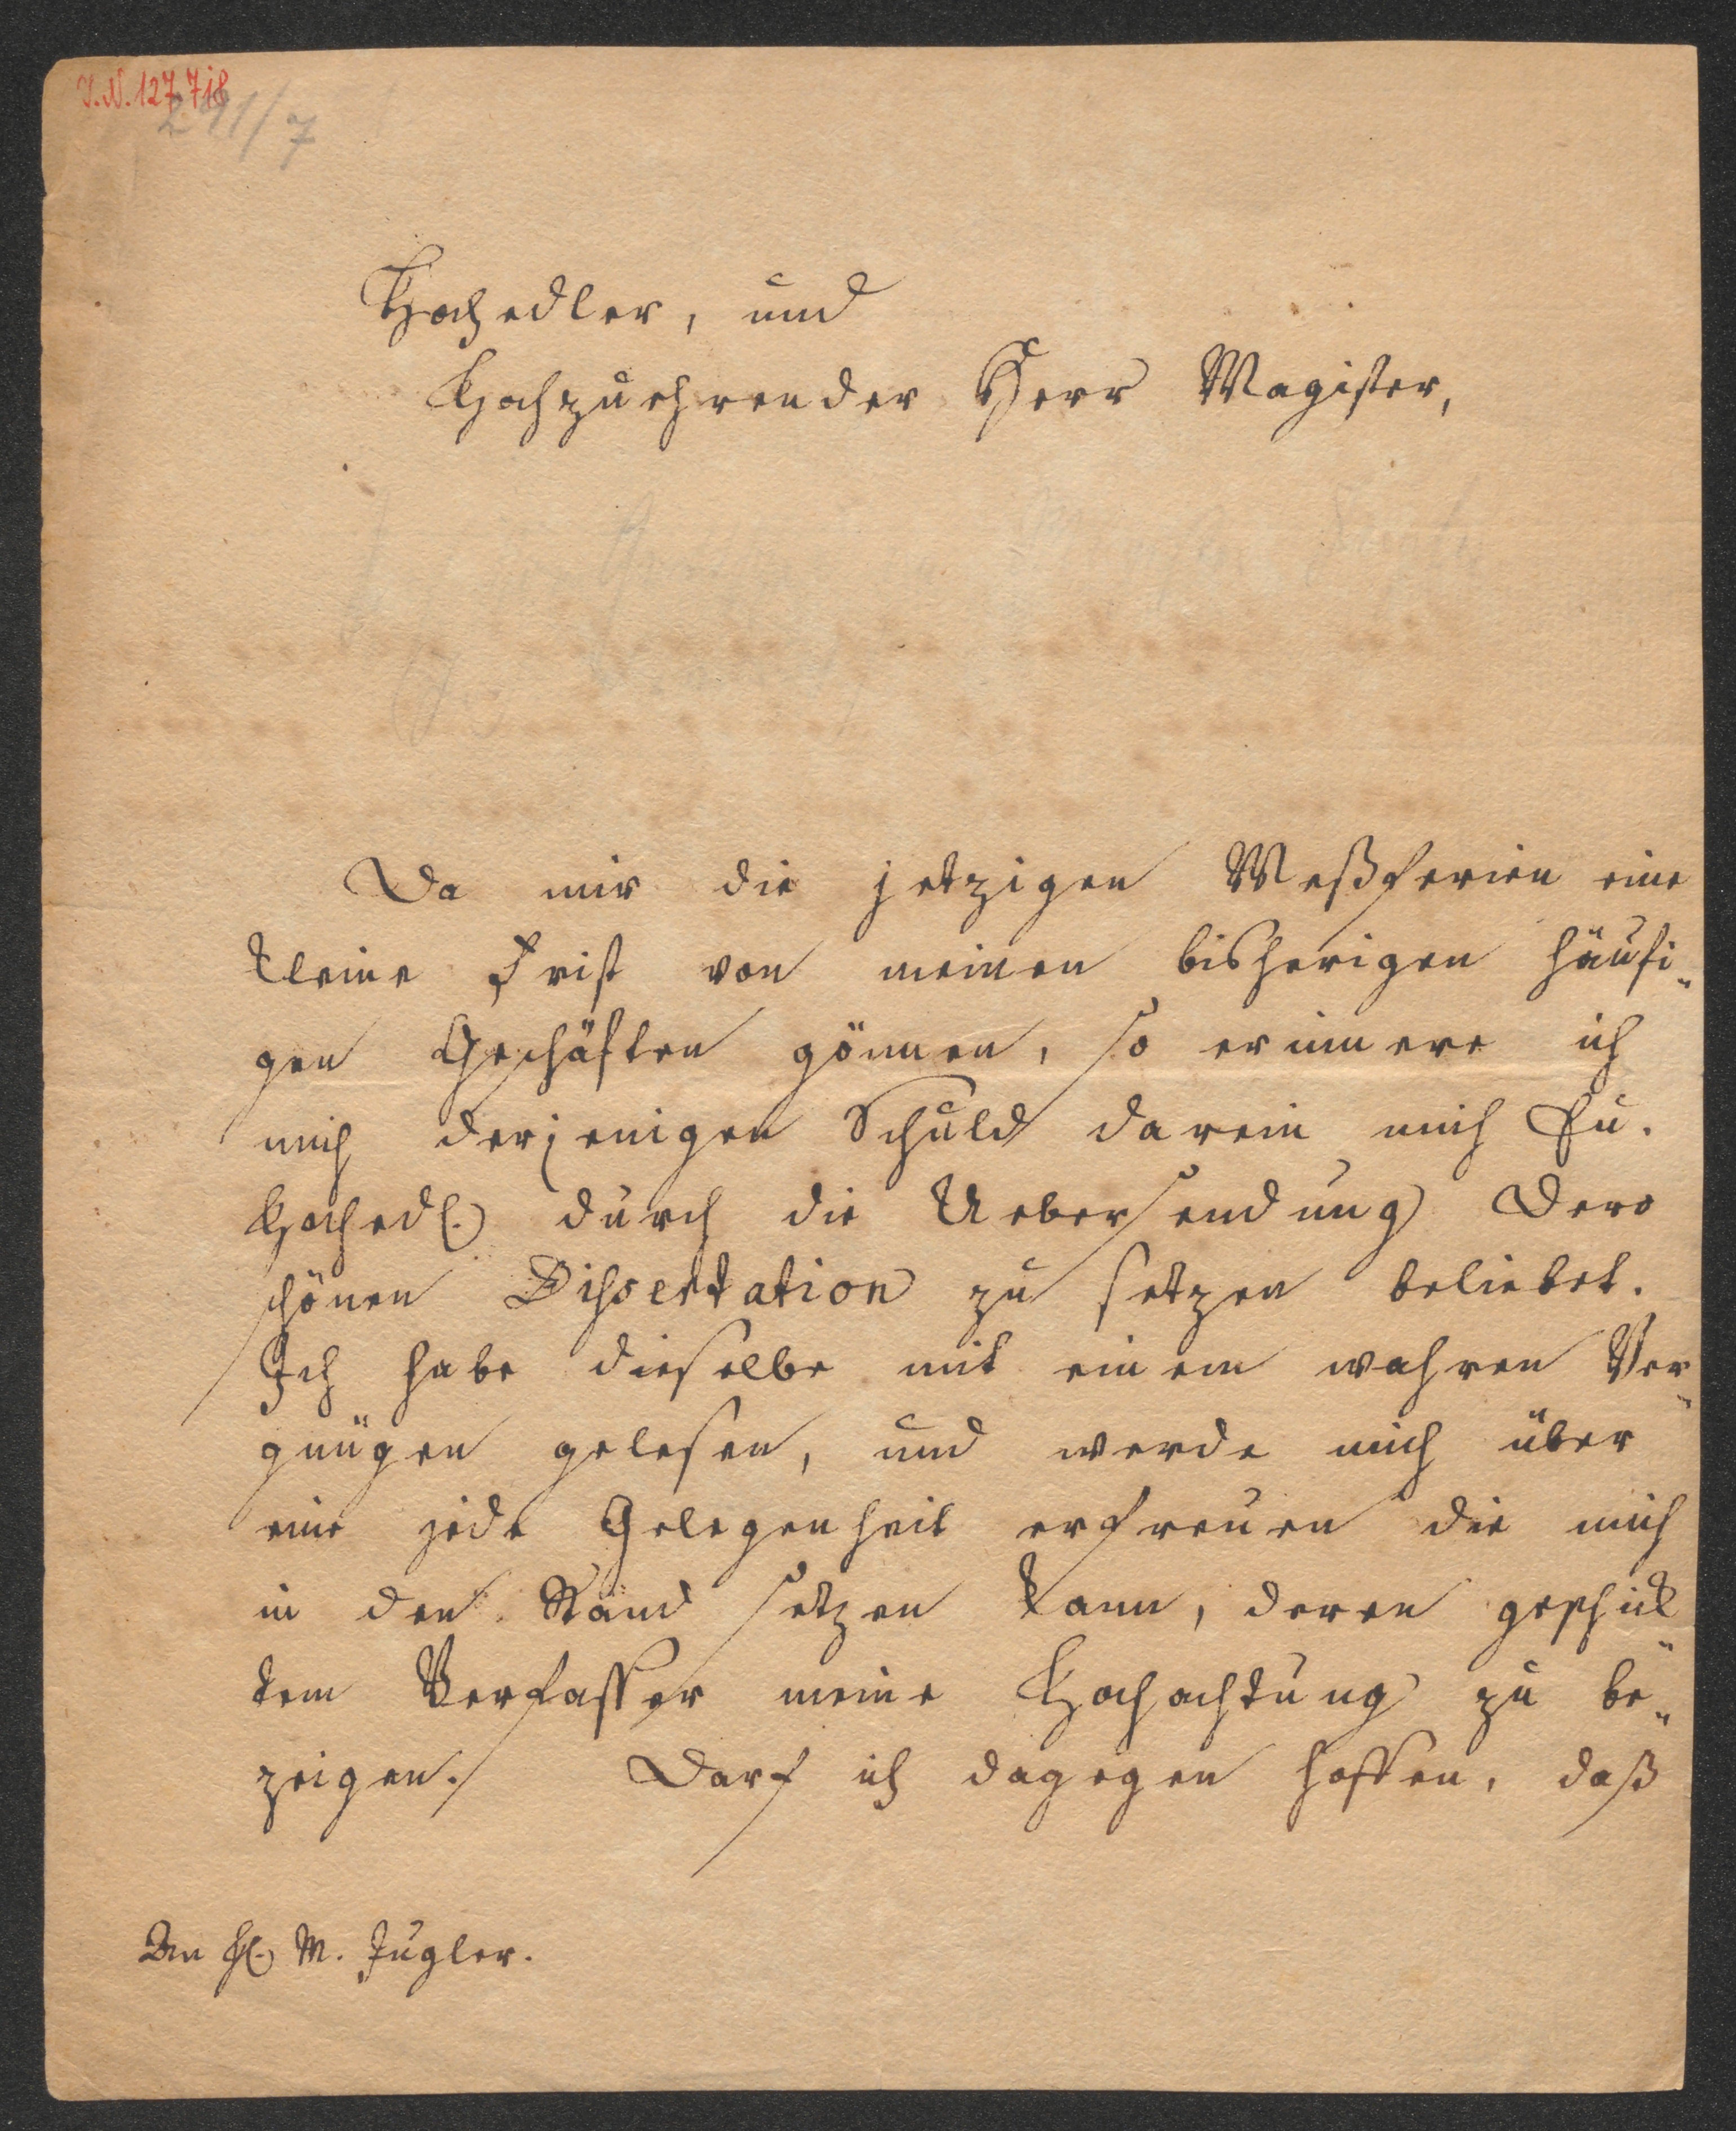 I.N. 127.718
291/7
Hochedler, und
Hochzuehrender Herr Magister,
Da mir die jetzigen Meßferien eine
kleine Frist von meinen bisherigen häufi-
gen Geschäften gönnen, so erinnere ich
mich derjenigen Schuld darein mich Eu.
Hochedl. durch die Uebersendung Dero
schönen Dissertation zu setzen beliebet.
Ich habe dieselbe mit einem wahren Ver-
gnügen gelesen, und werde mich über
eine jede Gelegenheit erfreuen die mich
in den Stand setzen kann, deren geschick-
tem Verfasser meine Hochachtung zu be-
zeigen. Darf ich dagegen hoffen, daß
An H. M. Jugler.